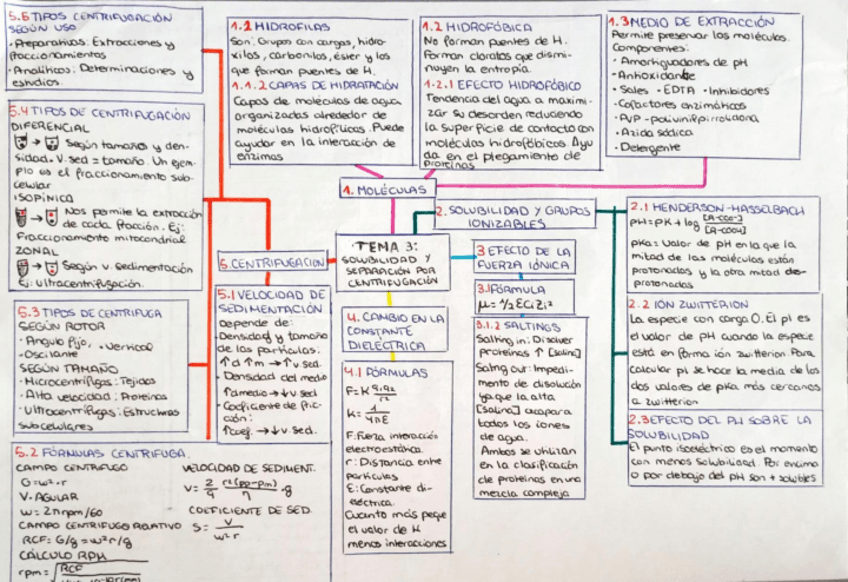 5.5 TIPOS CENTRIFUGACIÓN
SEGÚN USO
· Preparativas: Extracciones y
fraccionamientos
· Analíticos: Determinaciones y
estudios.
5.4 TIPOS DE CENTRIFUGACIÓN
DIFERENCIAL
→ Según tamaños y den-
sidad. V. sed = tamaño. Un ejem-
plo es el fraccionamiento sub-
celular
ISOPÍNICA
→ Nos permite la extracción
de cada fracción. Ej:
Fraccionamiento mitocondrial
ZONAL
→ Según v. sedimentación
Ej: Ultracentrifugación.
5.3 TIPOS DE CENTRIFUGA
SEGÚN ROTOR
· Angulo fijo, · Vertical
· Oscilante
SEGÚN TAMAÑO
· Microcentrífugas: Tejidos
· Alta velocidad: Proteínas
· Ultracentrífugas: Estructuras
subcelulares
5.2 FÓRMULAS CENTRIFUGA.
CAMPO CENTRIFUGO
G=w²·r
V. AGULAR
w = 2πrpm/60
CAMPO CENTRIFUGO RELATIVO
RCF= G/g = w²r/g
CÁLCULO RPM
rpm = √RCF
VELOCIDAD DE SEDIMENT.
v = 2/9 r²(ρp-ρm)/η · g
COEFICIENTE DE SED.
S = v/w²r
1.1 HIDROFILAS
Son: Grupos con cargas, hidro-
xilos, carbonilos, éster y los
que forman puentes de H.
1.1.2 CAPAS DE HIDRATACIÓN
Capas de moléculas de agua
organizadas alrededor de
moléculas hidrofílicas. Puede
ayudar en la interacción de
enzimas
1.2 HIDROFÓBICA
No forman puentes de H.
Forman clatratos que dismi-
nuyen la entropía.
1.2.1 EFECTO HIDROFÓBICO
Tendencia del agua a maximi-
zar su desorden reduciendo
la superficie de contacto con
moléculas hidrofóbicas. Ayu
da en el plegamiento de
proteínas
1.3 MEDIO DE EXTRACCIÓN
Permite preservar las moléculas.
Componentes:
· Amortiguadores de pH
· Antioxidante
· Sales · EDTA · Inhibidores
· Cofactores enzimáticos
· PVP - polivinilpirrolidona
· Azida sódica
· Detergente
1. MOLÉCULAS
2. SOLUBILIDAD Y GRUPOS
IONIZABLES
TEMA 3:
SOLUBILIDAD Y
SEPARACIÓN POR
CENTRIFUGACIÓN
5. CENTRIFUGACIÓN
5.1 VELOCIDAD DE
SEDIMENTACIÓN
Depende de:
· Densidad y tamaño
de las partículas:
↑d ↑m → ↑v sed.
· Densidad del medio
↑dmedio → ↓v sed
· Coeficiente de fric-
ción:
↑coef. → ↓v sed.
4. CAMBIO EN LA
CONSTANTE
DIELÉCTRICA
4.1 FÓRMULAS
F=K q1q2/r²
K= 1/4πE
F: Fuerza interacción
electroestática.
r: Distancia entre
partículas
E: Constante di-
eléctrica.
Cuanto más peqe
el valor de K
menos interacciones
3 EFECTO DE LA
FUERZA IÓNICA
3.1 FÓRMULA
μ = 1/2 ΣCiZi²
3.1.2 SALTINGS
Salting in: Disolver
proteínas ↑ [salina]
Salting out: Impedi-
mento de disolución
ya que la alta
[salina] acapara
todos los iones
de agua.
Ambos se utilizan
en la clasificación
de proteínas en una
mezcla compleja
2.1 HENDERSON-HASSELBACH
pH=pK + log [R-COO-]/[R-COOH]
pKa: Valor de pH en la que la
mitad de las moléculas están
protonadas y la otra mitad des-
protonadas
2.2 IÓN ZWITTERIÓN
La especie con carga 0. El pI es
el valor de pH cuando la especie
está en forma ión zwitterion. Para
calcular pI se hace la media de los
dos valores de pKa más cercanos
a zwitterion
2.3 EFECTO DEL PH SOBRE LA
SOLUBILIDAD
El punto isoeléctrico es el momento
con menos solubilidad. Por encima
o por debajo del pH son + solubles